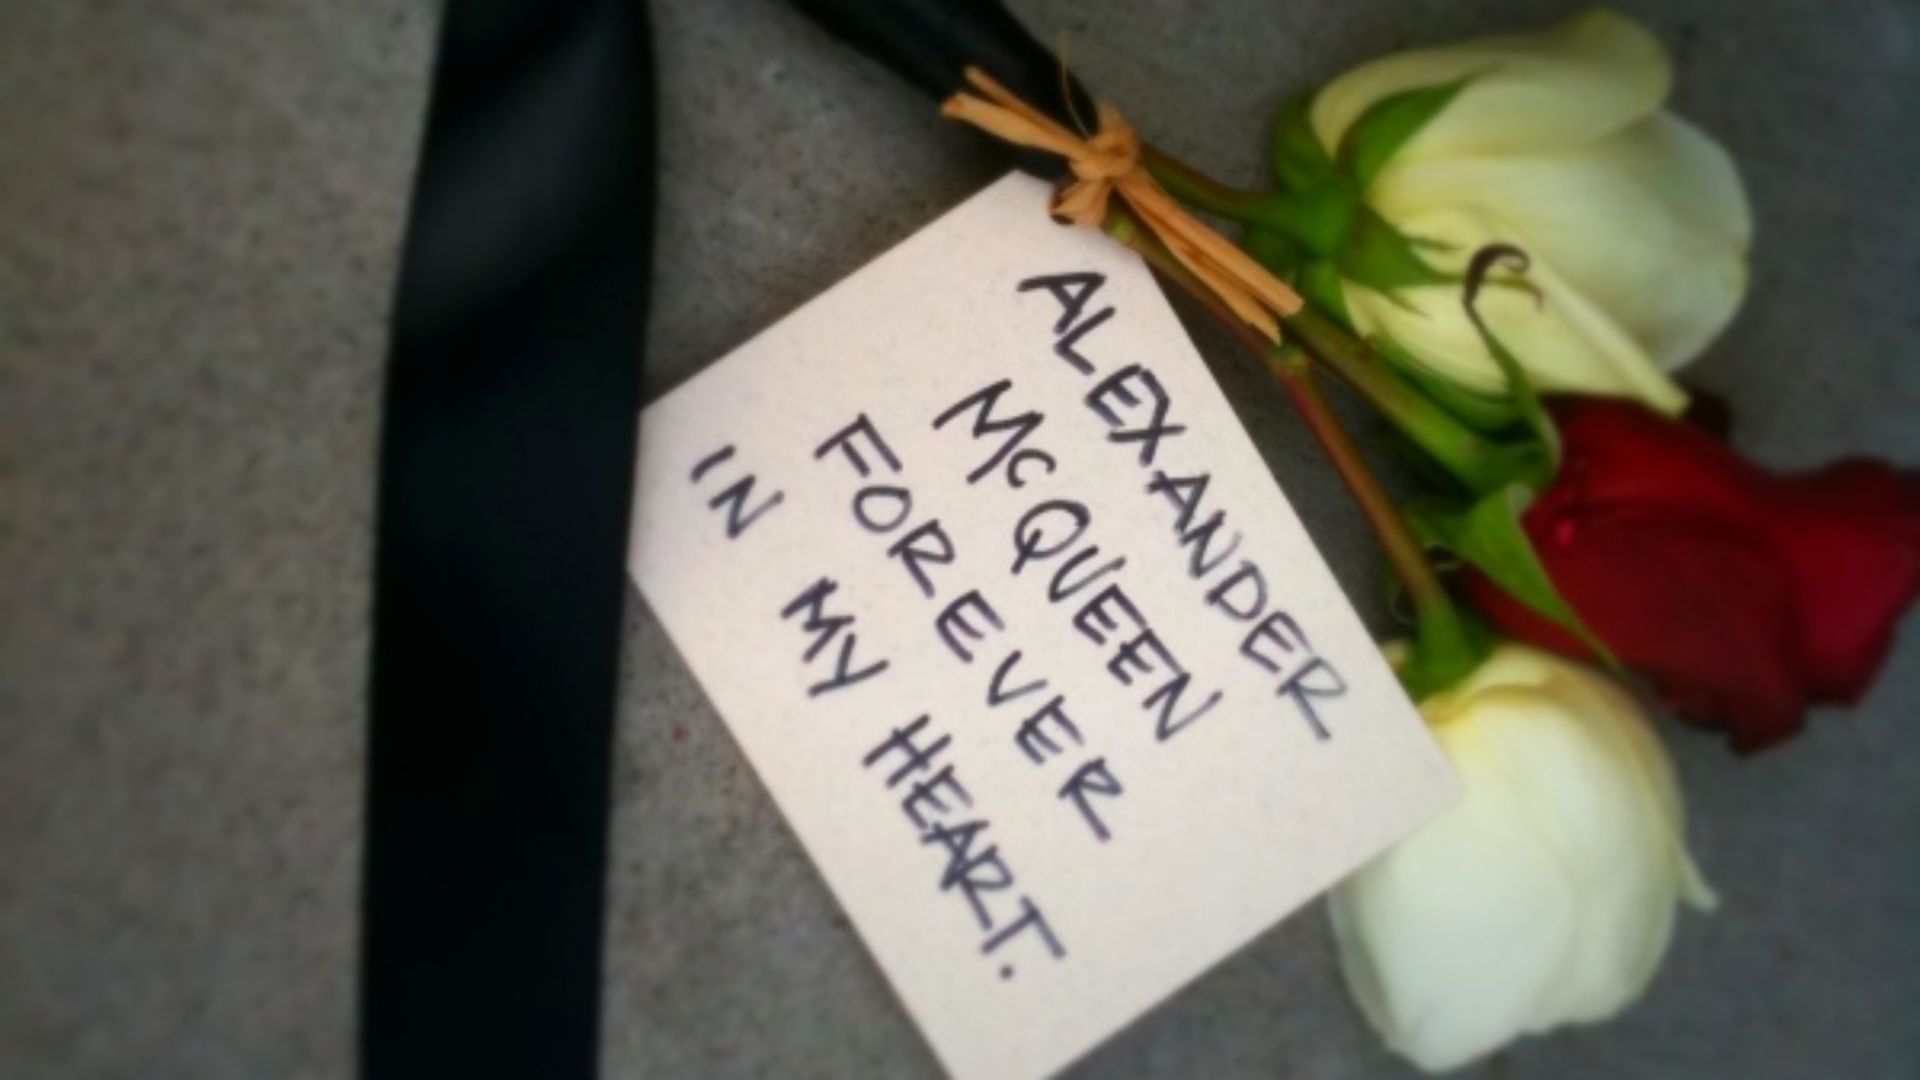 ALEXANDER
McQUEEN
FOREVER
IN MY HEART.